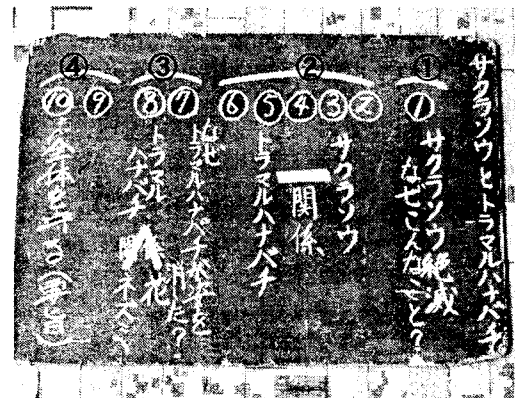 サクラソウとトラマルハナバチ
①
①
サクラソウ絶滅
なぜこんなこと?
②
②③④⑤⑥
サクラソウ
関係
トラマルハナバチ
③
⑦⑧
なぜ
トラマルハナバチが姿を
消した?
トラマル
ハナバチ
花
ネズミ
④
⑨⑩
全体を守る(要旨)